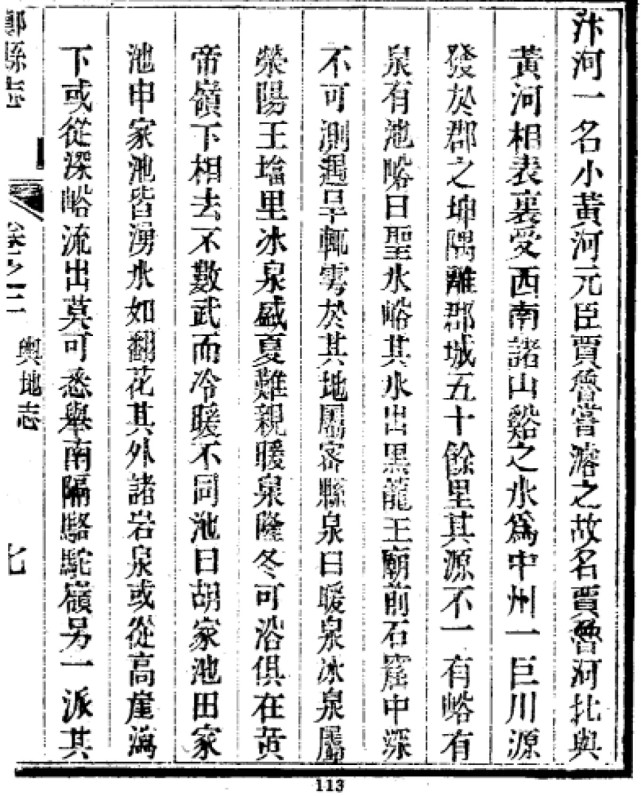 汴河一名小黃河元臣賈魯嘗濬之故名賈魯河北與
黃河相表裏受西南諸山谿之水爲中州一巨川源
發於郡之坤隅離郡城五十餘里其源不一有峪有
泉有池峪曰聖水峪其水出黑龍王廟前石窟中深
不可測遇旱輒雩於其地屬密縣泉曰暖泉冰泉屬
滎陽王塭里冰泉盛夏難親暖泉隆冬可浴俱在黃
帝嶺下相去不數武而冷暖不同池曰胡家池田家
池申家池皆湧水如翻花其外諸岩泉或從高崖瀉
下或從深峪流出莫可悉舉南隔駱駝嶺另一派其
縣志
卷之二
輿地志
七
113